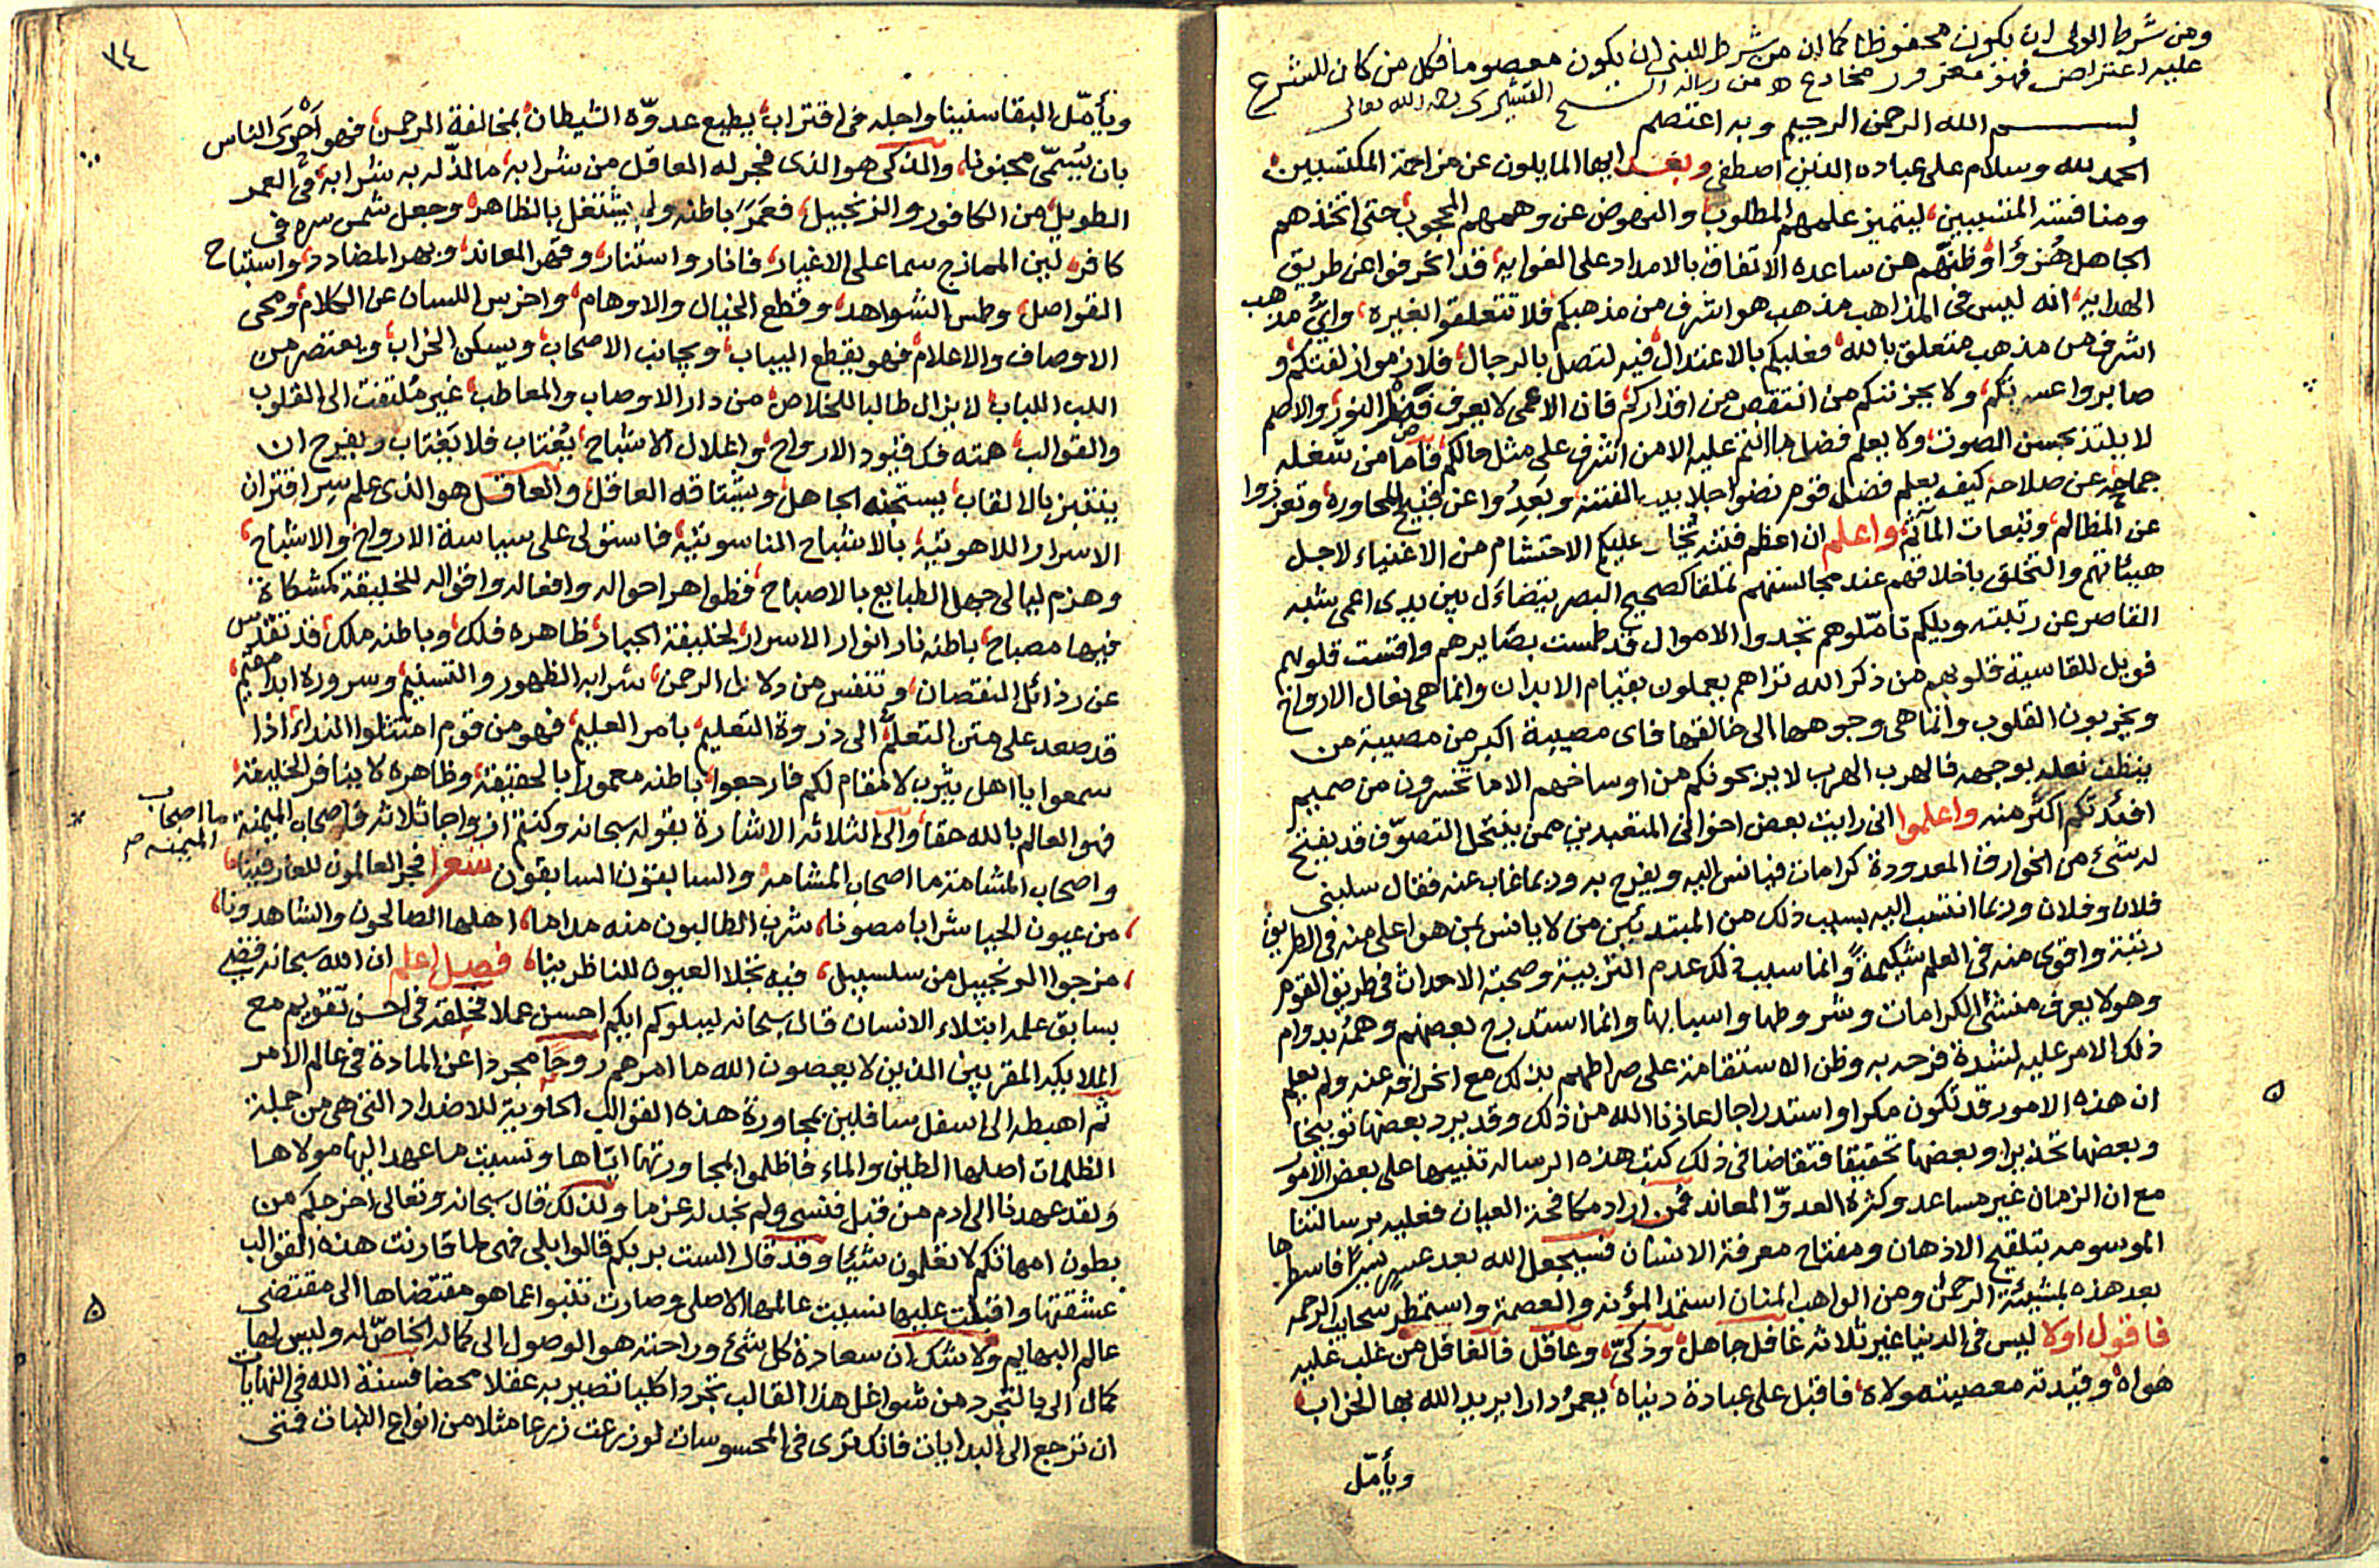 ومن شرط الولى ان يكون محفوظا كما ان من شرط النبى ان يكون معصوما فكل من كان للشرع
عليه اعتراض فهو مغرور مخادع ه من رسالة الشيخ القشيرى رحمه الله تعالى
بسم الله الرحمن الرحيم وبه اعتصم
الحمد لله وسلام على عباده الذين اصطفى وبعد ايها المايلون عن مزاحمة المكتسبين
ومنافسة المتسببين، ليتميز علمهم المطلوب، والنهوض عن وهمهم المحجوب، حتى اتخذهم
الجاهل هزؤا وظنهم من ساعده الاتفاق بالامداد على الغوايه، قد انحرفوا عن طريق
الهدايه، انه ليس فى المذاهب مذهب هو اشرف من مذهبكم فلا تتعلقوا بغيره، واى مذهب
اشرف من مذهب متعلق بالله فعليكم بالاعتدال فيه لتصل بالرجال، فلازموا زلفتكم و
صابروا عسرتكم، ولا يحزنكم من انتقص من اقداركم، فان الاعمى لا يعرف فضل النور، والاصم
لا يلتذ بحسن الصوت، ولا يعلم فضل ما انتم عليه الا من اشرف على مثل مالكم، فاما من شغله
جماحه عن صلاحه كيف يعلم فضل قوم نضوا جلابيب الفتنة، وبعدوا عن قبيح المحاوره، وتعزروا
عن المظالم، وتبعات المآثم، واعلم ان اعظم فتنة تختار عليكم الاحتشام من الاغنياء لاجل
هيئاتهم والتخلق باخلاقهم عند مجالستهم تملقا كصحيح البصر يتضاءل بين يدى اعمى شبه
القاصر عن رتبته ويلكم تاملوهم تجدوا الاموال قد طمست بصايرهم واقست قلوبهم
فويل للقاسية قلوبهم من ذكر الله تراهم يعملون بقيام الابدان وانما هى نعال الارواح
ويخربون القلوب وانما هى وجوهها الى خالقها فاى مصيبة اكبر من مصيبة من
ينظف نعله بوجهه فالهرب الهرب لا يربحونكم من اوساخهم الا ما تخسرون من صميم
افئدتكم اكثر منه واعلموا انى رايت بعض اخوانى المتعبدين ممن ينتحل التصوف قد يفتح
له شئ من الخوارق المعدودة كرامات فيانس اليه ويفرح به وربما غاب عنه فقال سلبنى
فلان وفلان وربما انتسب اليه بسبب ذلك من المبتدئين من لا يانس بمن هو اعلى منه فى الطريق
رتبة واقوى منه فى العلم شكيمة وانما سبب ذلك عدم التربية وصحبة الاحداث فى طريق القوم
وهو لا يعرف منشئ الكرامات وشروطها واسبابها وانما استدرج بعضهم وهمه بدوام
ذلك الامر عليه لشدة فرحه به وظن الاستقامة على صراطهم بذلك مع انحرافه عنه ولم يعلم
ان هذه الامور قد تكون مكرا واستدراجا اعاذنا الله من ذلك وقد يرد بعضها توبيخا
وبعضها تحذيرا وبعضها تحقيقا فتقاضا فى ذلك كتب هذه الرساله تنبيها على بعض الامور
مع ان الزمان غير مساعد وكثرة العدو المعاند فمن اراد مكافحة العيان فعليه برسالتنا
الموسومه بتلقيح الاذهان ومفتاح معرفة الانسان فسيجعل الله بعد عسر يسرا فاسطرها
بعد هذه بمشيئة الرحمن ومن الواهب المنان استمد المؤنه والعصمة واستمطر سحايب الرحمه
فاقول اولا ليس فى الدنيا غير ثلاثه غافل جاهل، وذكى، وعاقل فالغافل من غلب عليه
هواه، وقيدته معصيته مولاه، فاقبل على عبادة دنياه، يعمر دارا يريد الله بها الخراب،
ويأمل
٧٤
ويأمل البقا سنينا واجله فى اقتراب، يطيع عدوه الشيطان بمخالفة الرحمن، فهو احرى الناس
بان يسمى مجنونا، والذكى هو الذى فجر له العاقل من شرابه، ما لذ له به شرابه، فى العمر
الطويل من الكافور والزنجبيل، فعمر باطنه ولم يشتغل بالظاهر، وجعل شمس سره فى
كافر لبن الممازج سما على الاغيار، فانار واستنار، وقهر المعاند، وبهر المضادد، واستباح
الفواصل، وطمس الشواهد، وقطع الخيال والاوهام، واخرس اللسان عن الكلام، ومحى
الاوصاف والاعلام، فهو يقطع اليباب، ويجانب الاصحاب، ويسكن الخراب، ويعتصر من
اللب اللباب، لا يزال طالبا للخلاص، من دار الاوصاب والمعاطب، غير ملتفت الى القلوب
والقوالب، همته فك قيود الارواح، واغلال الاشباح، يغتاب فلا يغتاب ويفرح ان
ينتبز بالالقاب، يستجنه الجاهل، ويشتاقه العاقل، والعاقل هو الذى علم سر اقتران
الاسرار اللاهوتيه، بالاشباح الناسوتيه، فاستولى على سياسة الارواح والاشباح،
وهزم ليالى جهل الطبايع بالاصباح، فظواهر احواله وافعاله واقواله للخليقة كمشكاة
فيها مصباح، باطنه نار انوار الاسرار لخليفة الجبار، ظاهره فلك، وباطنه ملك، قد تقدس
عن رذائل النقصان، وتنفس من دلائل الرحمن، شرابه الطهور والتسنيم، وسروره ابدا مقيم،
قد صعد على متن التعلم، الى ذروة التعليم، بامر العليم، فهو من قوم امتثلوا النداء، اذا
سمعوا يا اهل يثرب لا مقام لكم فارجعوا، باطنه معمورا بالحقيقة، وظاهره لا ينافر الخليقة،
فهو العالم بالله حقا، والى الثلاثه الاشارة بقوله سبحانه وكنتم ازواجا ثلاثه فاصحاب الميمنة
ما اصحاب الميمنه صح
واصحاب المشامة ما اصحاب المشامه والسابقون السابقون شعر فجر العالمون للعارفينا
من عيون الحيا شرابا مصونا، شرب الطالبون منه مداما، اهلها الصالحون والشاهدونا،
مزجوا الزنجبيل من سلسبيل، فيه تجلا العيون للناظرينا، فصل اعلم ان الله سبحانه قضى
بسابق علمه ابتلاء الانسان قال سبحانه ليبلوكم ايكم احسن عملا فخلقه فى احسن تقويم مع
الملايكة المقربين الذين لا يعصون الله ما امرهم روحا مجردا عن المادة فى عالم الامر
ثم اهبطه الى اسفل سافلين بمجاورة هذه القوالب الحاوية للاضداد التى هى من جملة
الظلمات اصلها الطين والماء فاظلموا بمجاورتها اياها ونسيت ما عهد اليها مولاها
ولقد عهدنا الى ادم من قبل فنسى ولم نجد له عزما ولذلك قال سبحانه وتعالى اخرجكم من
بطون امهاتكم لا تعلمون شيئا وقد قال الست بربكم قالوا بلى فهى لما قارنت هذه القوالب
عشقتها واقبلت عليها نسيت عالمها الاصلى وصارت تنبوا عما هو مقتضاها الى مقتضى
عالم البهايم ولا شك ان سعادة كل شئ وراحته هو الوصول الى كماله الخاص له وليس لها
كمال الى بالتجرد من شواغل هذا القالب تجردا كليا تصير به عقلا محضا فسنة الله فى النهايات
ان ترجع الى البدايات فانك ترى فى المحسوسات لو زرعت زرعا مثلا من انواع النبات فنتى